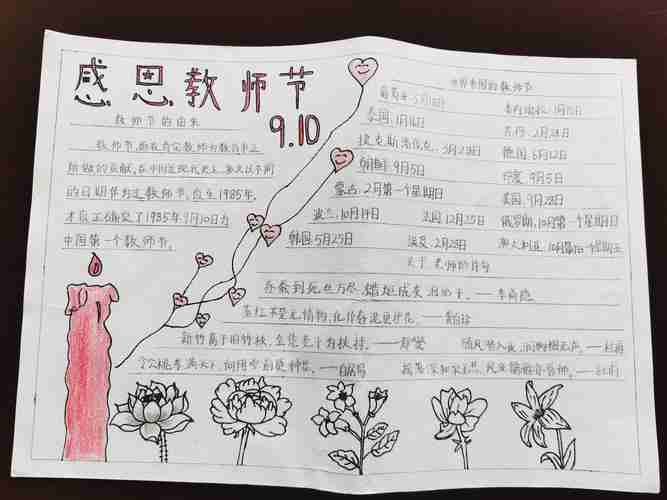 感恩教师节
9.10
教师节的由来
教师节,旨在肯定教师为教育事业
所做的贡献,在中国近现代史上,多次以不同
的日期作为过教师节,直至1985年,
才真正确定了1985年9月10日为
中国第一个教师节。
世界各国的教师节
泰国:1月16日
捷克斯洛伐克:3月28日
德国:6月12日
朝鲜:9月5日
印度:9月5日
蒙古:2月第一个星期日
美国:9月28日
波兰:10月14日
法国:12月25日
俄罗斯:10月第一个星期日
韩国:5月25日
2月28日
澳大利亚:10月最后一个星期五
关于老师的诗句
春蚕到死丝方尽,蜡炬成灰泪始干。——李商隐
落红不是无情物,化作春泥更护花。——龚自珍
新竹高于旧竹枝,全凭老干为扶持。——郑燮
随风潜入夜,润物细无声。——杜甫
令公桃李满天下,何用堂前更种花。——白居易
——杜甫